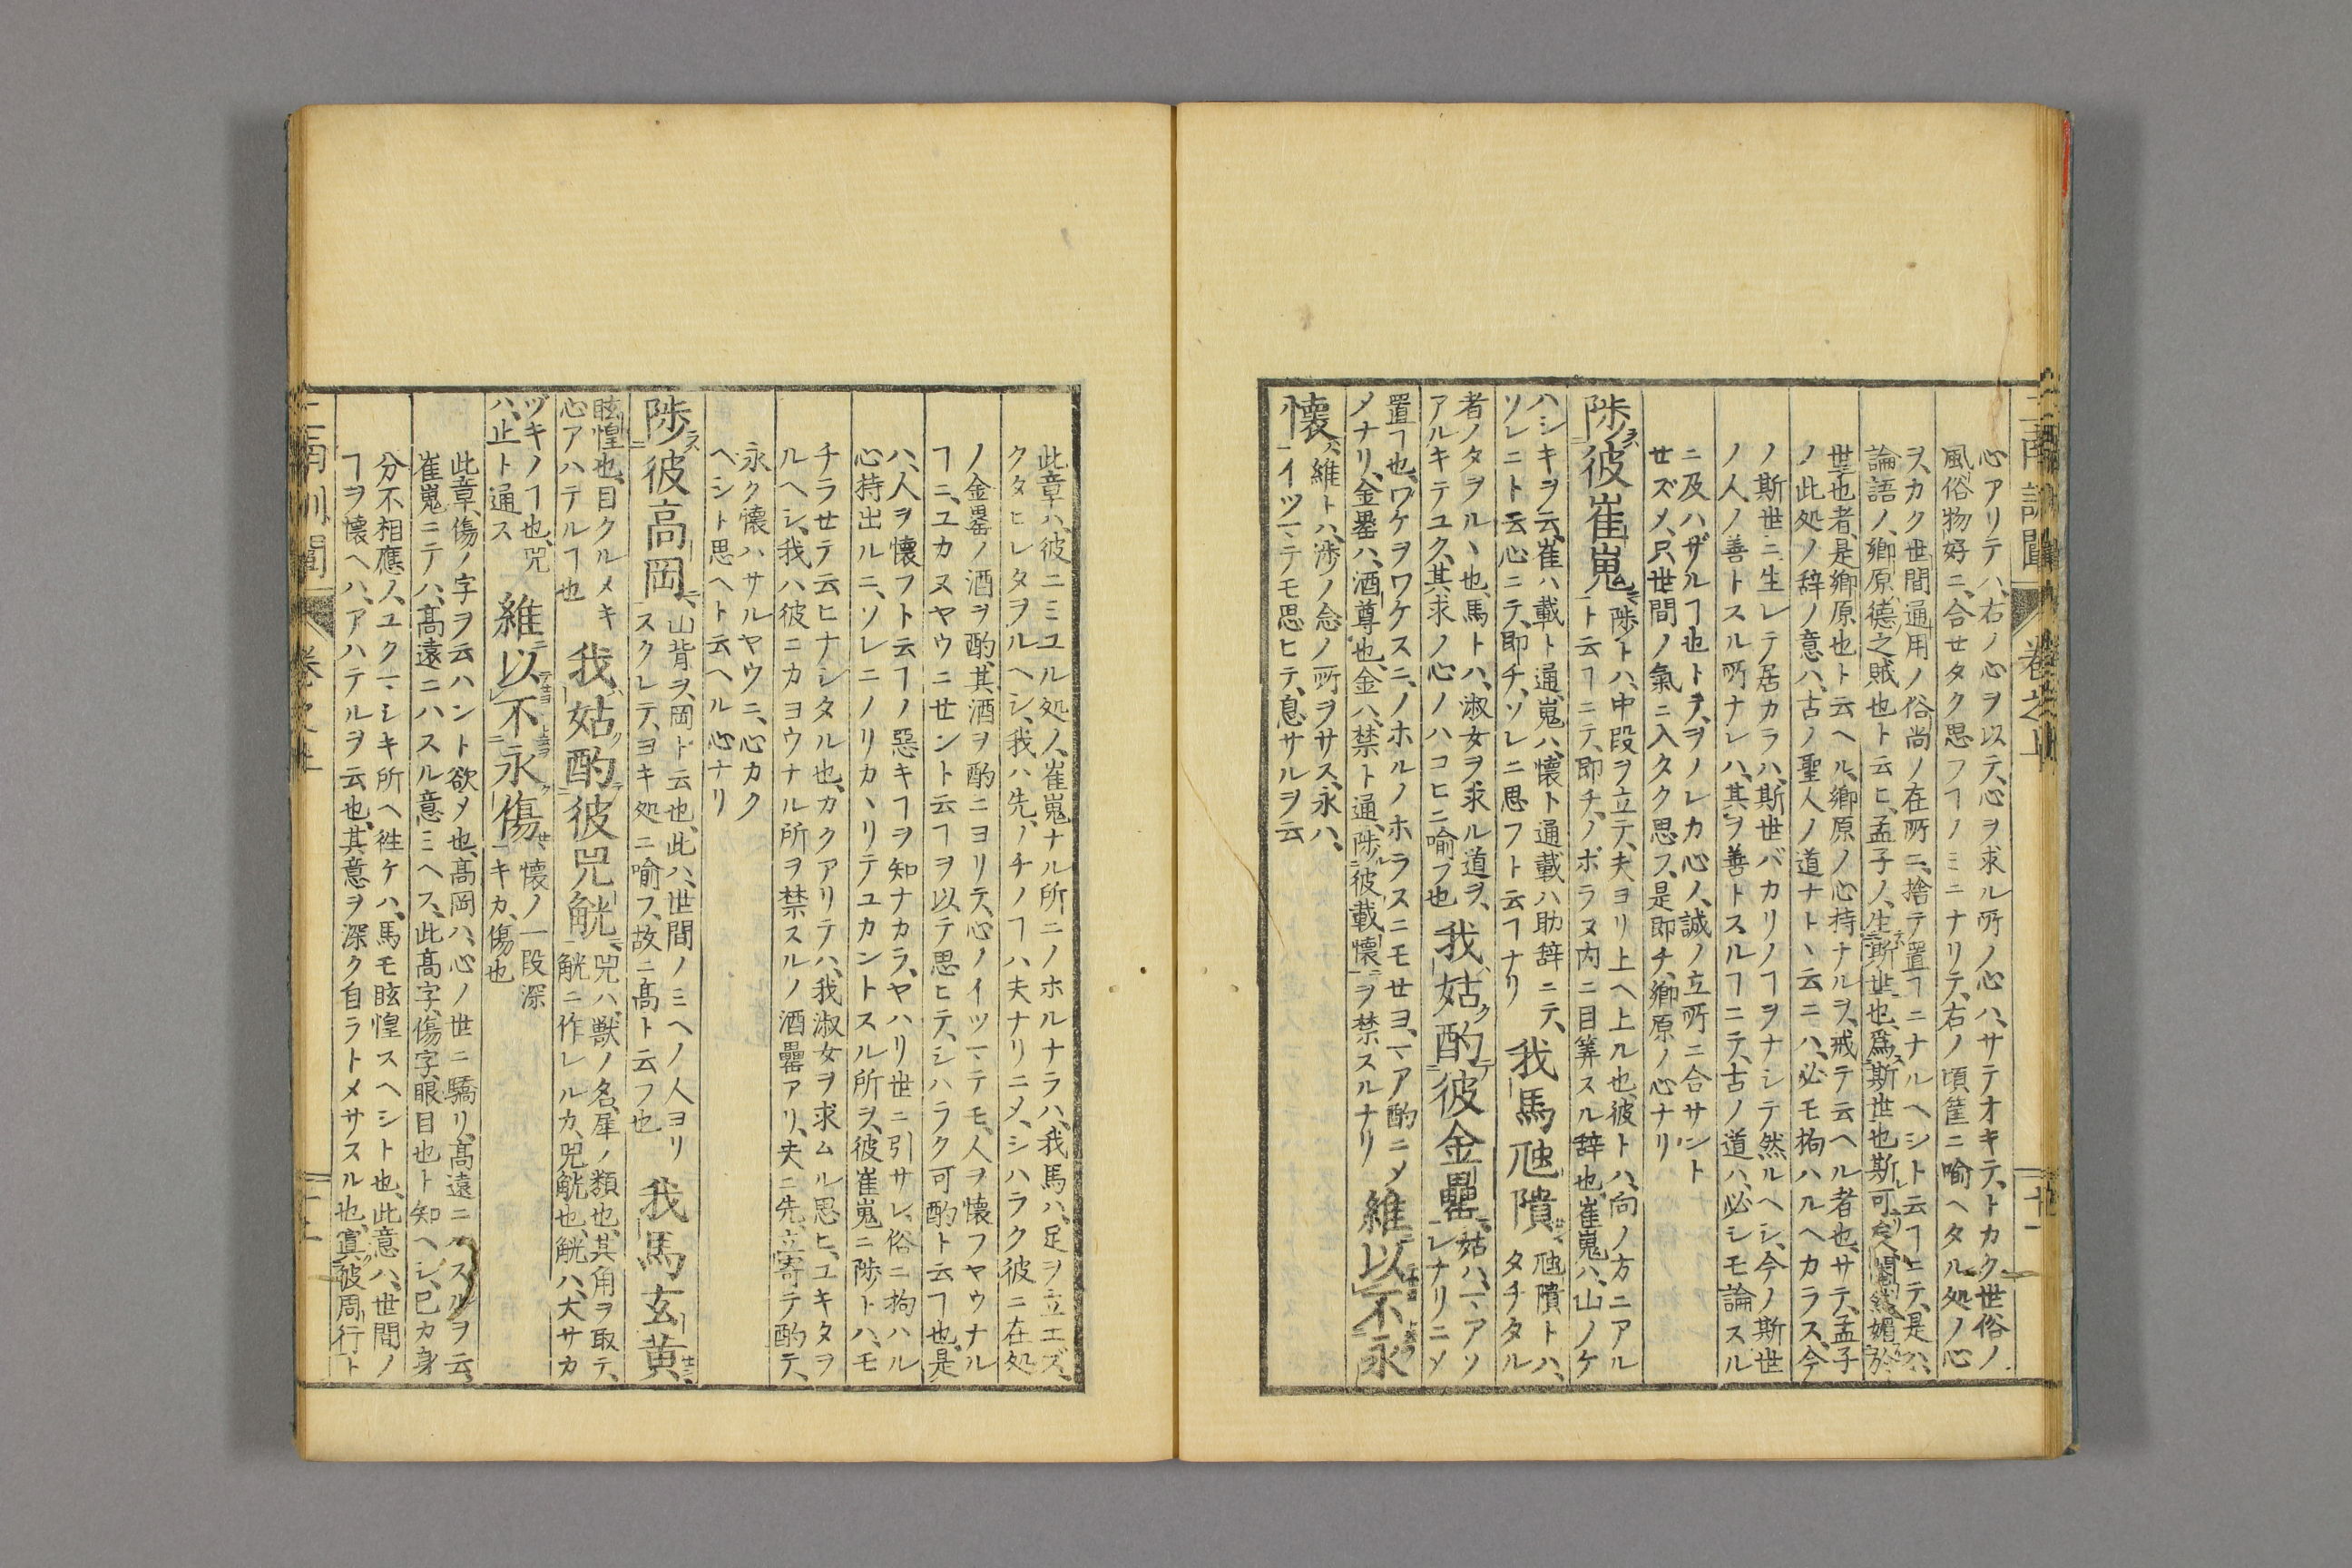 二南訓闡 卷之上 廿一
心アリテハ、右ノ心ヲ以テ、心ヲ求ル所ノ心ハ、サテオキテ、トカク世俗ノ
風俗物好ニ、合セタク思フヿノミニナリテ、右ノ頃筐ニ喩ヘタル処ノ心
ヲ、カク世間通用ノ俗尚ノ在所ニ、捨テ置ヿニナルヘシト云ヿニテ、是ハ、
論語ノ、郷原、德之賊也ト云ヒ、孟子ノ、生斯世也、爲斯世也、斯可矣、閹然媚於
世也者、是郷原也ト云ヘル、郷原ノ心持ナルヲ、戒テ云ヘル者也、サテ、孟子
ノ此処ノ辞ノ意ハ、古ノ聖人ノ道ナト、云ニハ、必モ拘ハルヘカラス、今
ノ斯世ニ生レテ居カラハ、斯世バカリノヿヲナシテ然ルヘシ、今ノ斯世
ノ人ノ善トスル所ナレハ、其ヲ善トスルヿニテ、古ノ道ハ、必シモ論スル
ニ及ハザルヿ也トテ、ヲノレカ心ノ、誠ノ立所ニ合サント
せズメ、只世間ノ氣ニ入タク思フ、是即チ、郷原ノ心ナリ
陟彼崔嵬
陟トハ、中段ヲ立テ、夫ヨリ上ヘ上ル也、彼トハ、向ノ方ニアル
ト云ヿニテ、即チ、ノボラヌ内ニ目筭スル辞也、崔嵬ハ、山ノケ
ハシキヲ云、崔ハ載ト通、嵬ハ、懷ト通載ハ助辞ニテ、
ソレニト云心ニテ、即チ、ソレニ思フト云ヿナリ
我馬虺隤
虺隤トハ、タチタル
者ノタヲルヽ也、馬トハ、淑女ヲ求ル道ヲ、
アルキテユク、其求ノ心ノハコヒニ喩フ也
我姑酌彼金罍
姑ハ、マヽアソ
レナリニメ
置ヿ也、ワケヲワケスニ、ノホルノホラスニモせヨ、マヽア酌ニメ
メナリ、金罍ハ、酒尊也、金ハ、禁ト通、陟彼載懷ヲ禁スルナリ
維以不永
懷
維トハ、渉ノ念ノ所ヲサス、永ハ、
イツマテモ思ヒテ、息サルヲ云
此章ハ、彼ニミユル処ノ、崔嵬ナル所ニノホルナラハ、我馬ハ、足ヲ立エズ、
クタヒレタヲルヘシ、我ハ先、ノチノヿハ夫ナリニメ、シハラク彼ニ在処
ノ金罍ノ酒ヲ酌、其酒ヲ酌ニヨリテ、心ノイツマテモ、人ヲ懷フヤウナル
ヿニ、ユカヌヤウニせント云ヿヲ以テ思ヒテ、シハラク可酌ト云ヿ也、是
ハ、人ヲ懷フト云ヿノ惡キヿヲ知ナカラ、ヤハリ世ニ引サレ、俗ニ拘ハル
心持出ルニ、ソレニノリカヽリテユカントスル所ヲ、彼崔嵬ニ陟トハ、モ
チラせテ云ヒナシタル也、カクアリテハ、我淑女ヲ求ムル思ヒ、ユキタヲ
ルヘシ、我ハ、彼ニカヨウナル所ヲ禁スルノ酒罍アリ、夫ニ先、立寄テ酌テ、
永ク懷ハサルヤウニ、心カク
ヘシト思ヘト云ヘル心ナリ
陟彼高岡
山背ヲ、岡ト云也、此ハ、世間ノミヘノ人ヨリ
スクレテ、ヨキ処ニ喻フ、故ニ高ト云フ也
我馬玄黄
眩惶也、目クルメキ
心アハテルヿ也
我姑酌彼兕觥
兕ハ、獣ノ名、犀ノ類也、其角ヲ取テ、
觥ニ作レルカ、兕觥也、觥ハ、大サカ
ヅキノヿ也、兕
ハ、止ト通ス
維以不永傷
懷ノ一段深
キカ、傷也
此章、傷ノ字ヲ云ハント欲メ也、高岡ハ、心ノ世ニ驕リ、高遠ニハスルヲ云、
崔嵬ニテハ、高遠ニハスル意ミヘス、此高字、傷字、眼目也ト知ヘシ、己カ身
分不相應ノ、ユクマシキ所ヘ徃ケハ、馬モ眩惶スヘシト也、此意ハ、世間ノ
ヿヲ懷ヘハ、アハテルヲ云也、其意ヲ深ク自ラトメサスル也、寘彼周行ト